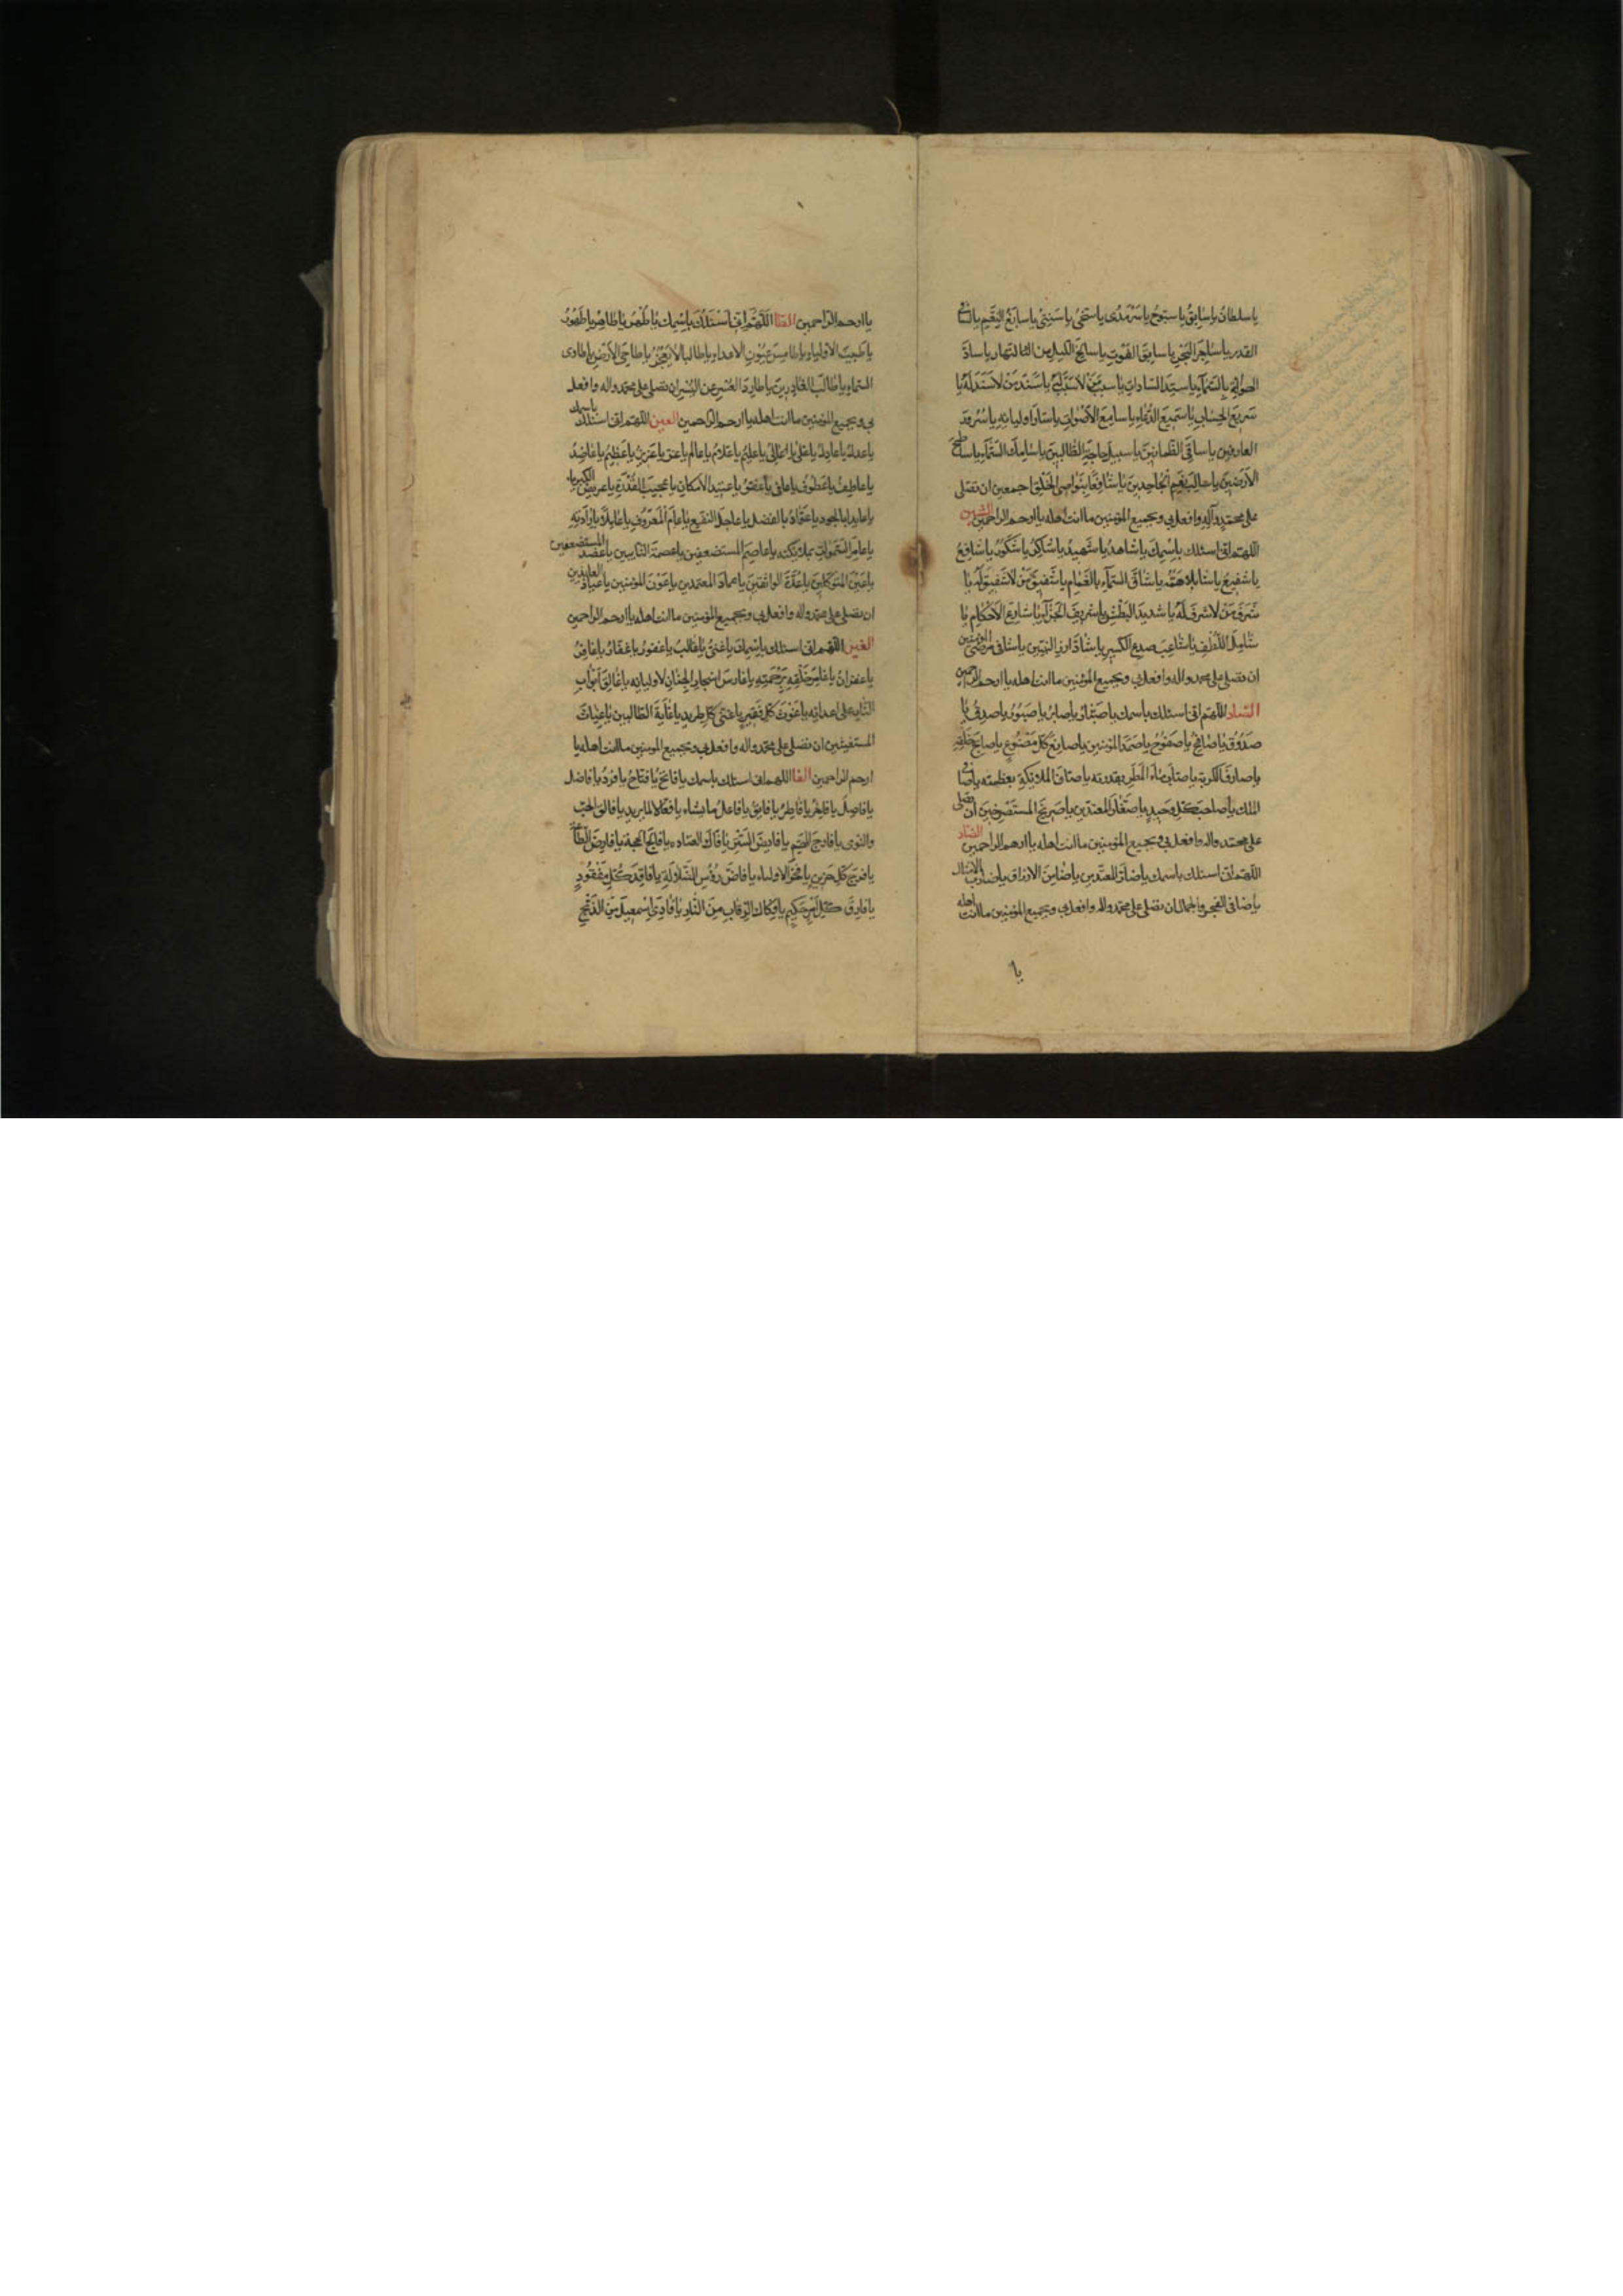 يا سلطان يا سابق يا سبوح يا سرمدى يا سخى يا سنى يا سابغ النقم يا
القدر يا ساجر البحر يا سابق الفوت يا سالخ الليل من النهار يا
يا سيد السادات يا سبب من لا سبب له يا سند من لا سند له يا
سريع الحساب يا سميع الدعاء يا سامع الاصوات يا سار اوليائه يا سرور
العارفين يا ساقى الظمانين يا سبيل حاجة الطالبين يا سامك السماء يا ساطح
الارضين يا سالب نعيم الجاحدين يا سافعا بنواصى الخلق اجمعين ان تصلى
على محمد وآله وافعل بى وبجميع المؤمنين ما انت اهله يا ارحم الراحمين الشين
اللهم انى اسئلك باسمك يا شاهد يا شهيد يا شاكر يا شكور يا شافع
يا شفيع يا شاق السماء بالغمام يا شفيق من لا شفيق له يا
شرف من لا شرف له يا شديد البطش يا شريف الجزاء يا شارع الاحكام يا
شامل اللطف يا شاعب صدع الكسير يا شاد ازر النبيين يا شافى مرضى المؤمنين
ان تصلى على محمد واله وافعل بى وبجميع المؤمنين ما انت اهله يا ارحم الراحمين
الصاد اللهم انى اسئلك باسمك يا صبار يا صابر يا صبور يا صادق يا
صدوق يا صافح يا صفوح يا صمد المؤمنين يا صانع كل مصنوع يا صالح خلقه
يا صارف الكربة يا صاب ماء المطر بقدرته يا صاف الملائكة بعظمته يا صافى
الملك يا صاحب كل وحيد يا صغار المعتدين يا صريخ المستصرخين ان تصلى
على محمد واله وافعل بى وبجميع المؤمنين ما انت اهله يا ارحم الراحمين الضاد
اللهم انى اسئلك باسمك يا ضامن الارزاق يا ضارب الامثال
يا ضافى الفجر والجمال ان تصلى على محمد واله وافعل بى وبجميع المؤمنين ما انت اهله
يا
يا ارحم الراحمين الطا اللهم انى اسئلك باسمك يا طهر يا طاهر يا طهور
يا طبيب الاولياء يا طامس عيون الاعداء يا طالبا لا يعجز يا طاحى الارض يا طاوى
السماء يا طالب الغادرين يا طارد العسر عن اليسر ان تصلى على محمد واله وافعل
بى وبجميع المؤمنين ما انت اهله يا ارحم الراحمين العين اللهم انى اسئلك باسمك
يا عدل يا عادل يا على يا عالى يا عليم يا علام يا عالم يا عز يا عزيز يا عظيم يا عاضد
يا عاطف يا عطوف يا عافى يا عفو يا عتيد الامكان يا عجيب القدرة يا عريض الكبرياء
يا عاجل النفع يا عام المعروف يا عاملا بارادته
يا عامر السموات بملائكته يا عاصم المستضعفين يا عصمة التايبين يا عضد المستضعفين
يا عين المتوكلين يا عدة الواثقين يا عماد المعتمدين يا عون المؤمنين يا عياذ العايذين
ان تصلى على محمد واله وافعل بى وبجميع المؤمنين ما انت اهله يا ارحم الراحمين
الغين اللهم انى اسئلك باسمك يا غنى يا غالب يا غفور يا غفار يا غافر
يا غفران يا غامر خلقه برحمته يا غارس اشجار الجنان لاوليائه يا غالق ابواب
النار على اعدائه يا غوث كل فقير يا غنى كل طريد يا غاية الطالبين يا غياث
المستغيثين ان تصلى على محمد واله وافعل بى وبجميع المؤمنين ما انت اهله يا
ارحم الراحمين الفا اللهم انى اسئلك باسمك يا فاتح يا فتاح يا فرد يا فاضل
يا فاصل يا فاطر يا فائق يا فاعل ما يشاء يا فعالا لما يريد يا فالق الحب
والنوى يا فارج الهم يا فايض يا فاك العتاة يا فالج الحجة يا فارض الطاعة
يا فرج كل حزين يا فخر الاولياء يا فاض رؤس الضلالة يا فاقد كل مفقود
يا فارق كل امر حكيم يا فكاك الرقاب من النار يا فادى اسمعيل من الذبح